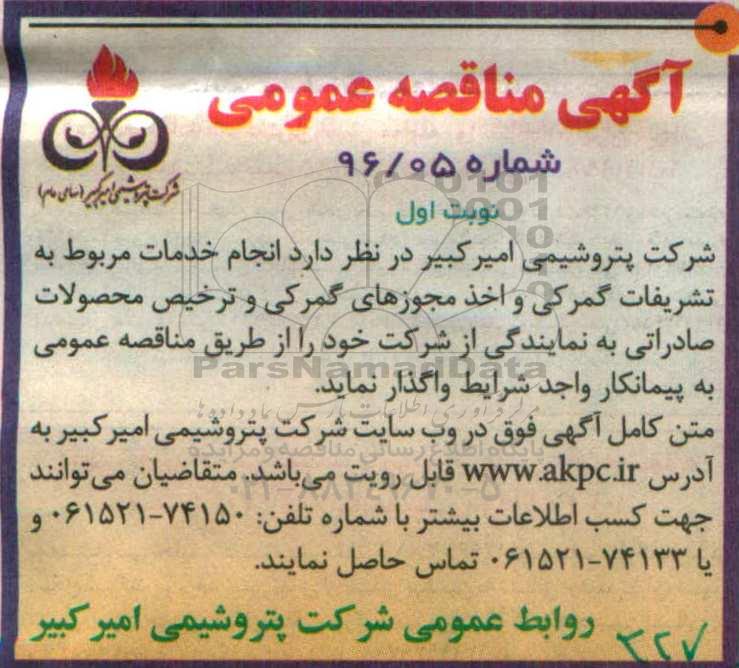 آگهی مناقصه عمومی
شماره ۹۶/۰۵
نوبت اول
شرکت پتروشیمی امیرکبیر (سهامی عام)
شرکت پتروشیمی امیرکبیر در نظر دارد انجام خدمات مربوط به
تشریفات گمرکی و اخذ مجوزهای گمرکی و ترخیص محصولات
صادراتی به نمایندگی از شرکت خود را از طریق مناقصه عمومی
به پیمانکار واجد شرایط واگذار نماید.
متن کامل آگهی فوق در وب سایت شرکت پتروشیمی امیرکبیر به
آدرس www.akpc.ir قابل رویت می‌باشد. متقاضیان می‌توانند
جهت کسب اطلاعات بیشتر با شماره تلفن: ۷۴۱۵۰-۰۶۱۵۲۱ و
یا ۷۴۱۳۳-۰۶۱۵۲۱ تماس حاصل نمایند.
روابط عمومی شرکت پتروشیمی امیرکبیر
۳۲۷
ParsNamadData
پایگاه اطلاع رسانی مناقصه و مزایده